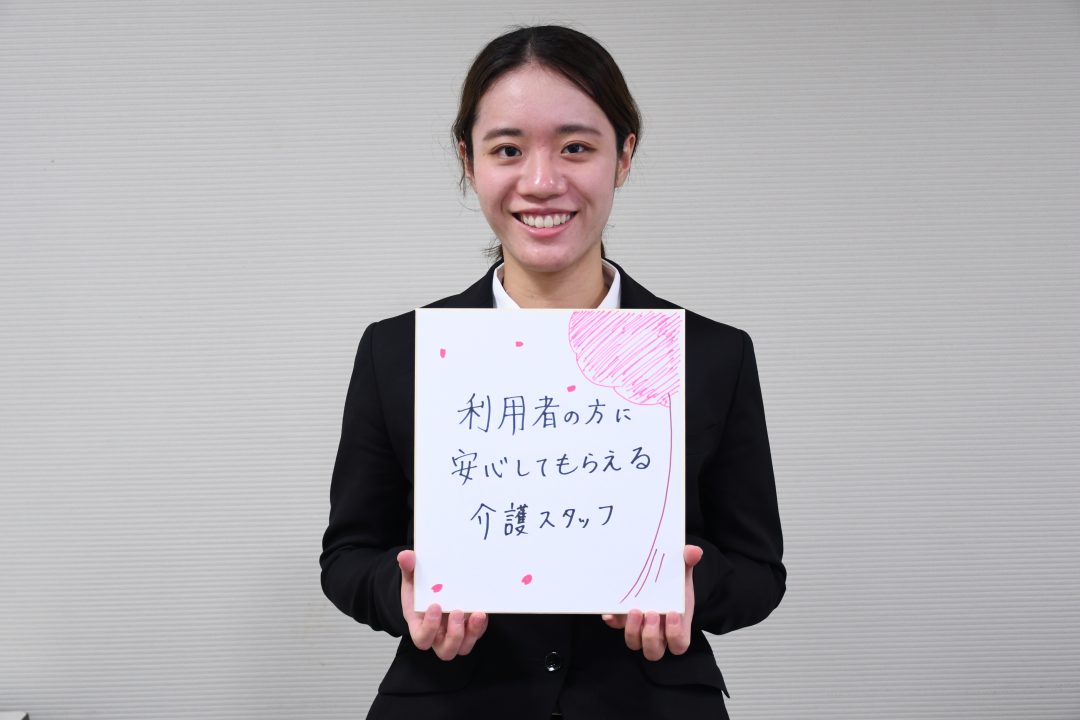 利用者の方に
安心してもらえる
介護スタッフ